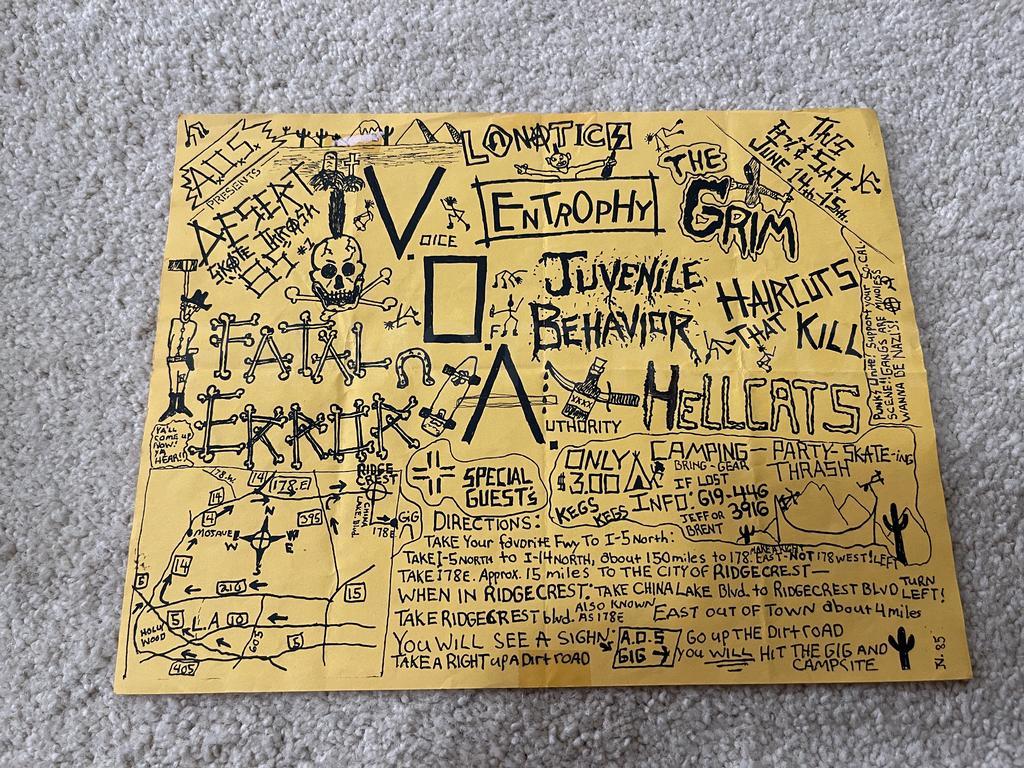 A.O.S.
PRESENTS
DESERT
SKATE THRASH
85
LUNATICS
ENTROPHY
THE
GRIM
THIS
FRI & SAT.
JUNE 14th. 15th.
V.
OICE
O.
F.
A.
UTHORITY
JUVENILE
BEHAVIOR
HAIRCUTS
THAT KILL
FATAL
ERROR
HELLCATS
XXXX
Punks Unite! Support your So. CAL
SCENE!! GANGS ARE MINDLESS
WANNA BE NAZIS!
YA'LL
COME UP
NOW!
YA
HEAR!!
SPECIAL
GUEST's
ONLY
$3.00
KEGS
KEGS
CAMPING - PARTY - SKATE-ing
THRASH
BRING-GEAR
IF LOST
INFO: 619-446
3916
JEFF OR
BRENT
178.W
14
178.E
RIDGE
CREST
14
14
395
CHINA
LAKE Blvd.
178E
GiG
MOJAVE
N
W
E
S
14
5
210
15
5
L.A
10
HOLLY
WOOD
605
5
405
DIRECTIONS:
TAKE Your favorite Fwy To I-5 North:
TAKE I-5 NORTH to I-14 NORTH, about 150 miles to 178. EAST-NOT 178 WEST! LEFT
MAKE A RIGHT
TAKE 178E. Approx. 15 miles TO THE CITY OF RIDGECREST—
WHEN IN RIDGECREST. TAKE CHINA LAKE Blvd. to RIDGECREST BLVD TURN
LEFT!
TAKE RIDGECREST blvd. ALSO KNOWN AS 178E EAST out OF TOWN about 4 miles
YOU WILL SEE A SIGHN: A.O.S GIG → GO UP THE Dirt ROAD
TAKE A RIGHT up a Dirt ROAD YOU WILL HIT THE GIG AND
CAMPSITE
JN. 85